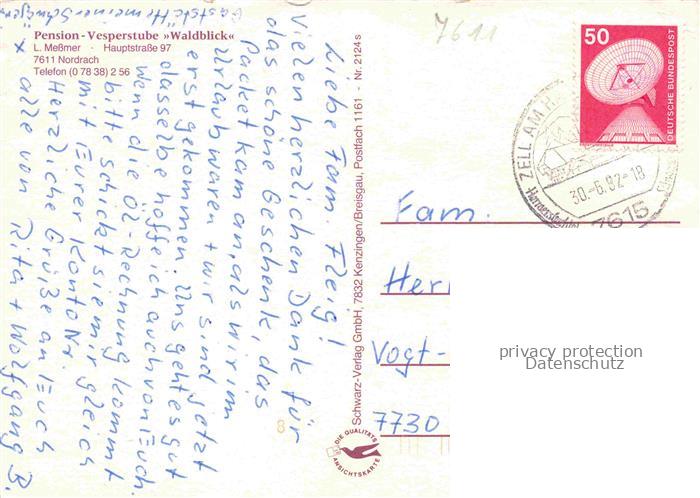 Gaststätte Hermeiner Schützen
Pension - Vesperstube »Waldblick«
L. Meßmer · Hauptstraße 97
7611 Nordrach
Telefon (0 78 38) 2 56
Liebe Fam. Fleig!
Vielen herzlichen Dank für
das schöne Geschenk, das
Packet kam an, als wir im
Urlaub waren + wir sind jetzt
erst gekommen. Uns geht es gut
dasselbe hoffe ich auch von Euch.
Wenn die Öl-Rechnung kommt
bitte schickt sie mir gleich
mit Eurer Konto Nr.
Herzliche Grüße an Euch
alle von Rita + Wolfgang B.
Schwarz-Verlag GmbH, 7832 Kenzingen/Breisgau, Postfach 1161 - Nr. 2124 s
DIE QUALITÄTS
ANSICHTSKARTE
7611
50
DEUTSCHE BUNDESPOST
ZELL AM H.
30.-6.82-18
7615
Fam.
Her
Vogt-
7730
privacy protection
Datenschutz